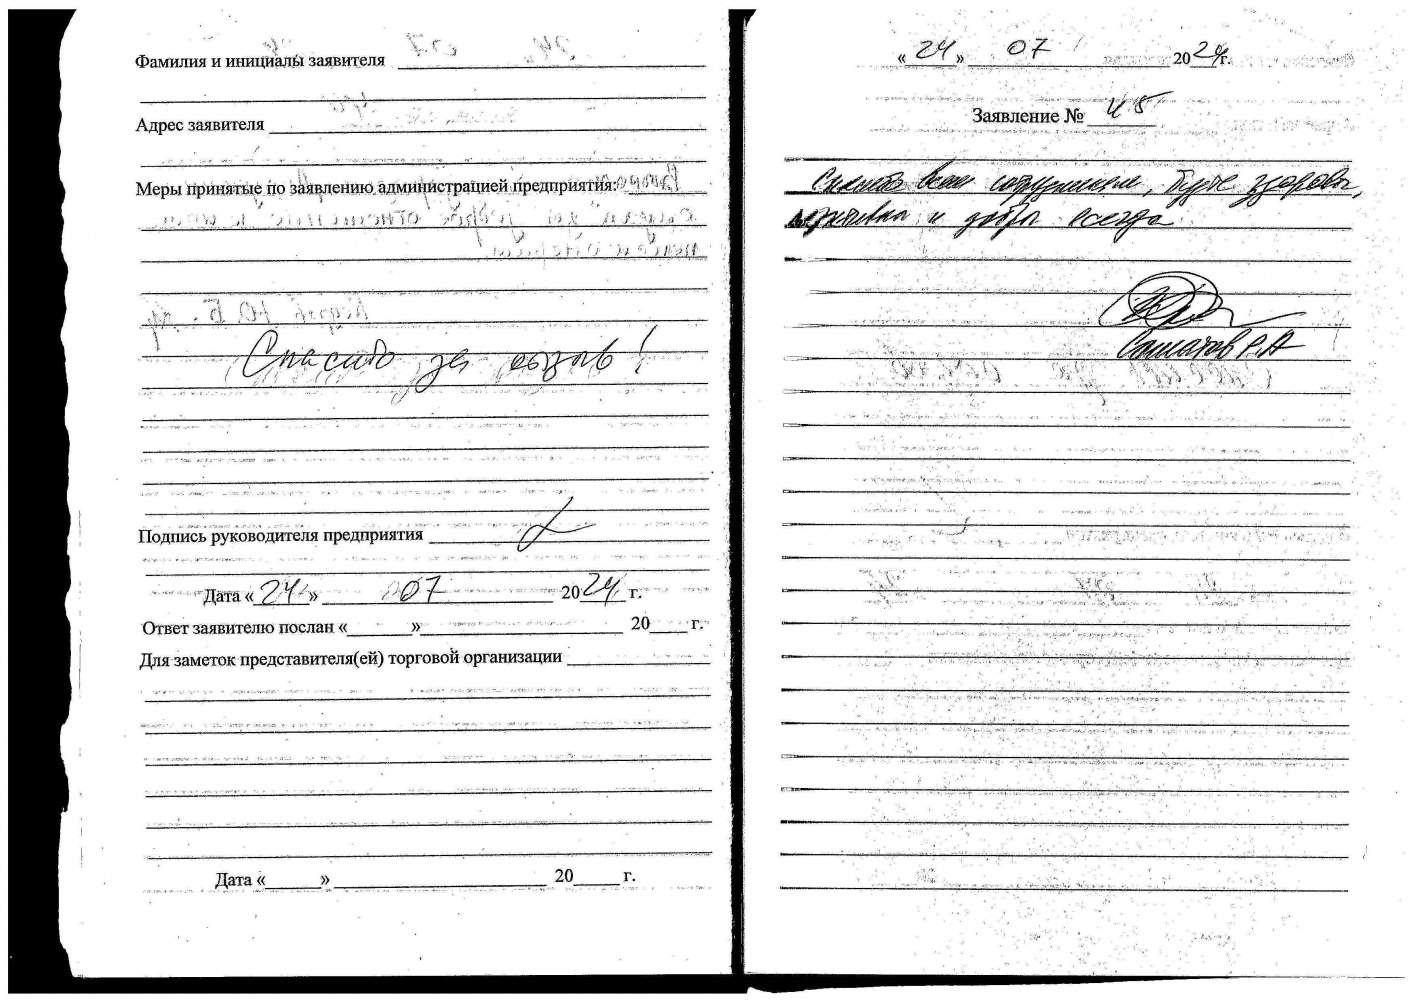 Фамилия и инициалы заявителя
Адрес заявителя
Меры принятые по заявлению администрацией предприятия:
Спасибо за отзыв!
Подпись руководителя предприятия
Дата «24» 07 2024 г.
Ответ заявителю послан « » 20 г.
Для заметок представителя(ей) торговой организации
Дата « » 20 г.
«24» 07 2024г.
Заявление № 45
Спасибо всем сотрудникам, будьте здоровы,
и добры всегда